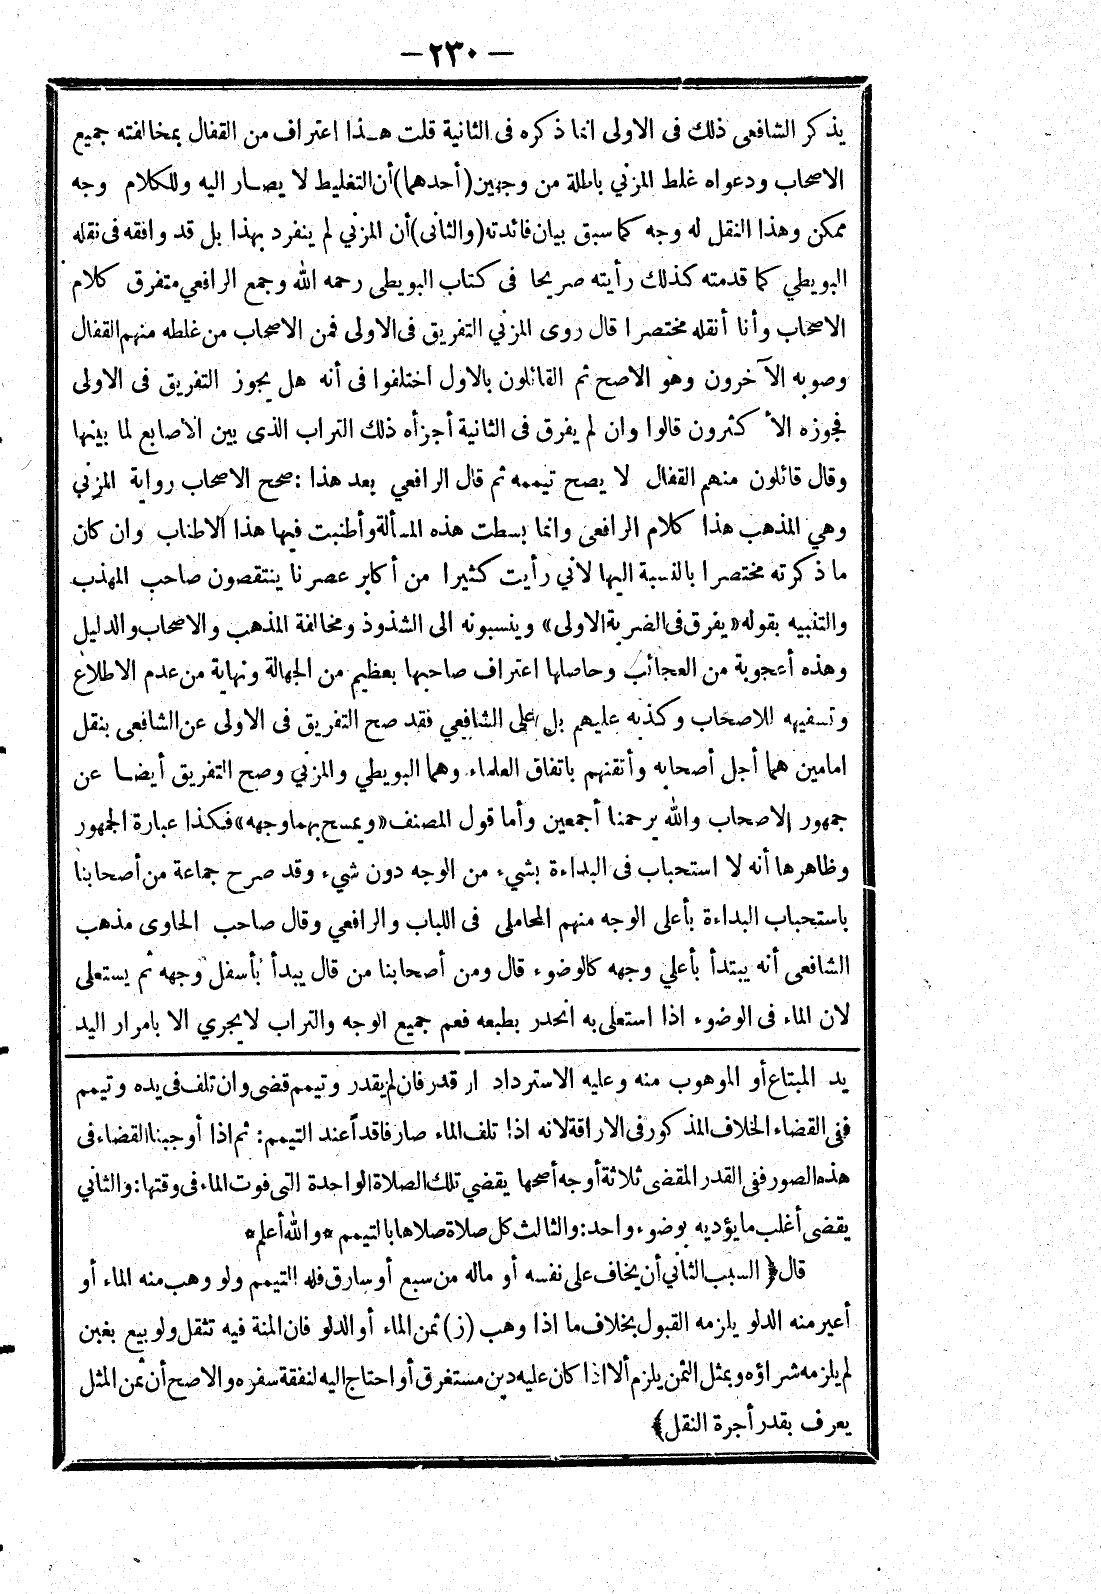 — ٢٣٠ —
يذكر الشافعى ذلك فى الاولى انما ذكره فى الثانية قلت هـذا اعتراف من القفال بمخالفته جميع
الاصحاب ودعواه غلط المزني باطلة من وجهين (أحدهما) أن التغليط لا يصـار اليه وللكلام وجه
ممكن وهذا النقل له وجه كما سبق بيان فائدته (والثانى) أن المزني لم ينفرد بهذا بل قد وافقه فى نقله
البويطي كما قدمته كذلك رأيته صريحا فى كتاب البويطى رحمه الله وجمع الرافعي متفرق كلام
الاصحاب وأنا أنقله مختصرا قال روى المزني التفريق فى الاولى فمن الاصحاب من غلطه منهم القفال
وصوبه الآخرون وهو الاصح ثم القائلون بالاول اختلفوا فى أنه هل يجوز التفريق فى الاولى
فجوزه الأكثرون قالوا وان لم يفرق فى الثانية أجزأه ذلك التراب الذى بين الاصابع لما بينها
وقال قائلون منهم القفال لا يصح تيممه ثم قال الرافعي بعد هذا : صحح الاصحاب رواية المزني
وهي المذهب هذا كلام الرافعى وانما بسطت هذه المسألة وأطنبت فيها هذا الاطناب وان كان
ما ذكرته مختصرا بالنسبة اليها لاني رأيت كثيرا من أكابر عصرنا ينتقصون صاحب المهذب
والتنبيه بقوله «يفرق فى الضربة الاولى» وينسبونه الى الشذوذ ومخالفة المذهب والاصحاب والدليل
وهذه أعجوبة من العجائب وحاصلها اعتراف صاحبها بعظيم من الجهالة ونهاية من عدم الاطلاع
وتسفيهه للاصحاب وكذبه عليهم بل على الشافعي فقد صح التفريق فى الاولى عن الشافعى بنقل
امامين هما أجل أصحابه وأتقنهم باتفاق العلماء وهما البويطي والمزني وصح التفريق أيضـا عن
جمهور الاصحاب والله يرحمنا أجمعين وأما قول المصنف «ويمسح بهما وجهه» فكذا عبارة الجمهور
وظاهرها أنه لا استحباب فى البداءة بشيء من الوجه دون شيء وقد صرح جماعة من أصحابنا
باستحباب البداءة بأعلى الوجه منهم المحاملى فى اللباب والرافعي وقال صاحب الحاوى مذهب
الشافعى أنه يبتدأ بأعلي وجهه كالوضوء قال ومن أصحابنا من قال يبدأ بأسفل وجهه ثم يستعلى
لان الماء فى الوضوء اذا استعلى به انحدر بطبعه فعم جميع الوجه والتراب لا يجري الا بامرار اليد
يد المبتاع أو الموهوب منه وعليه الاسترداد ان قدر فان لم يقدر وتيمم قضى وان تلف فى يده وتيمم
ففى القضاء الخلاف المذكور فى الاراقة لانه اذا تلف الماء صار فاقداً عند التيمم : ثم اذا أوجبنا القضاء فى
هذه الصور ففى القدر المقضى ثلاثة أوجه أصحها يقضي تلك الصلاة الواحدة التى فوت الماء فى وقتها : والثاني
يقضى أغلب ما يؤديه بوضوء واحد : والثالث كل صلاة صلاها بالتيمم * والله أعلم *
قال ﴿ السبب الثاني أن يخاف على نفسه أو ماله من سبع أو سارق فله التيمم ولو وهب منه الماء أو
أعير منه الدلو يلزمه القبول بخلاف ما اذا وهب (ز) ثمن الماء أو الدلو فان المنة فيه تثقل ولو بيع بغبن
لم يلزمه شراؤه وبمثل الثمن يلزم ألا اذا كان عليه دين مستغرق أو احتاج اليه لنفقة سفره والاصح أن ثمن المثل
يعرف بقدر أجرة النقل ﴾